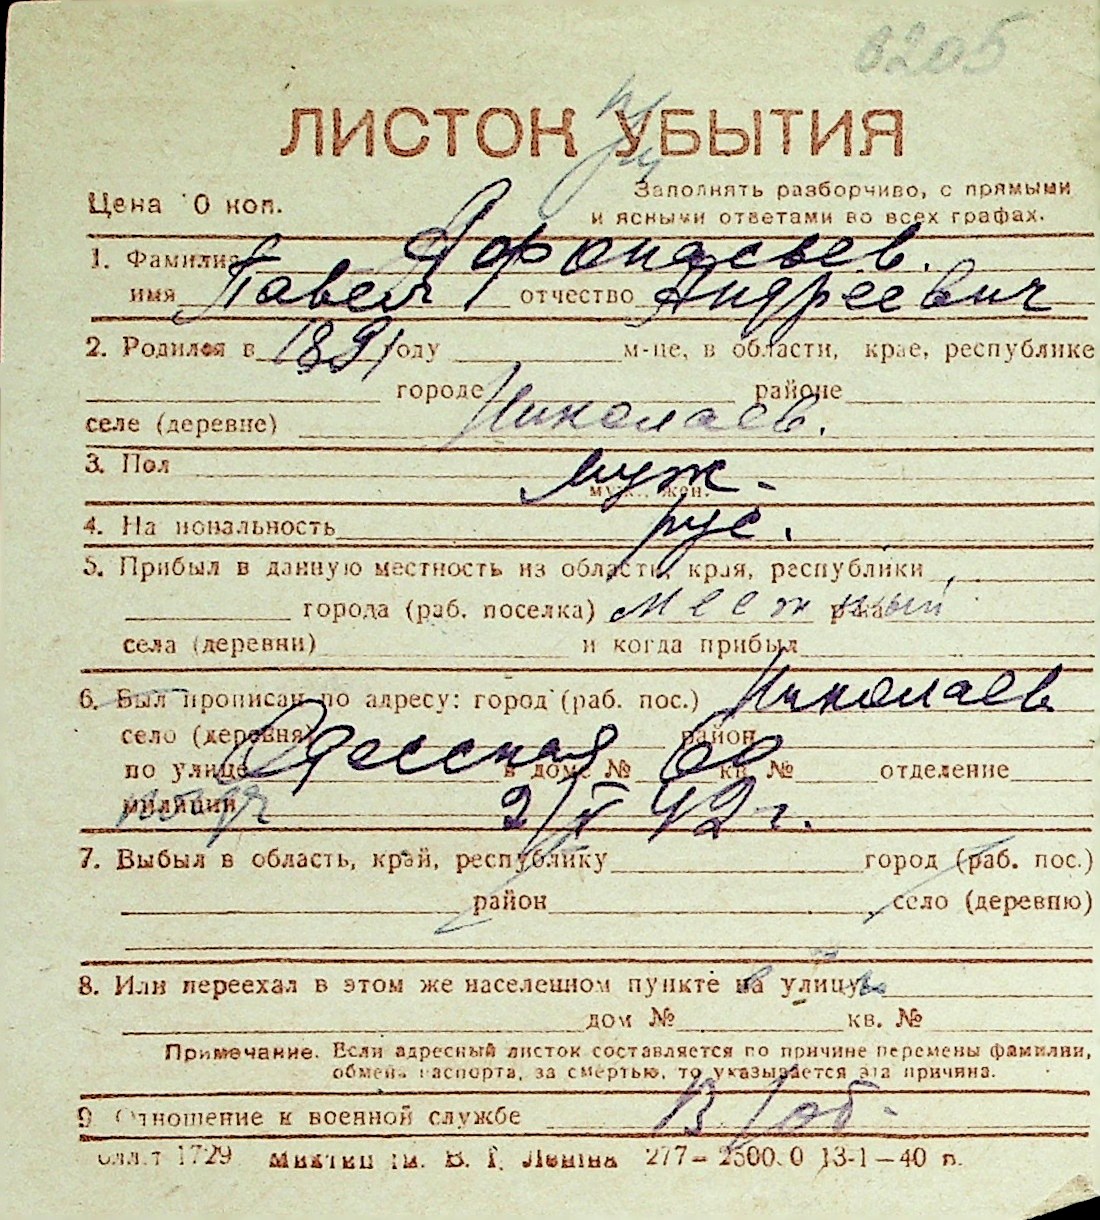 8205
ЛИСТОК УБЫТИЯ
Цена 10 коп.
Заполнять разборчиво, с прямыми
и ясными ответами во всех графах.
1. Фамилия Афонасьев.
имя Павел отчество Андреевич
2. Родился в 1891 году м-це, в области, крае, республике
городе Николаев. районе
селе (деревне)
3. Пол муж.
муж., жен.
4. Национальность рус.
5. Прибыл в данную местность из области, края, республики
города (раб. поселка) местный
села (деревни) и когда прибыл
6. Был прописан по адресу: город (раб. пос.) Николаев
село (деревня) район
по улице Одесская в доме № 60 кв. № отделение
милиции 2/V 42 г.
7. Выбыл в область, край, республику город (раб. пос.)
район село (деревню)
8. Или переехал в этом же населенном пункте на улицу
дом № кв. №
Примечание. Если адресный листок составляется по причине перемены фамилии,
обмена паспорта, за смертью, то указывается эта причина.
9. Отношение к военной службе В/об.
1729 им. В. И. Ленина 277—2500.0 13-1—40 г.